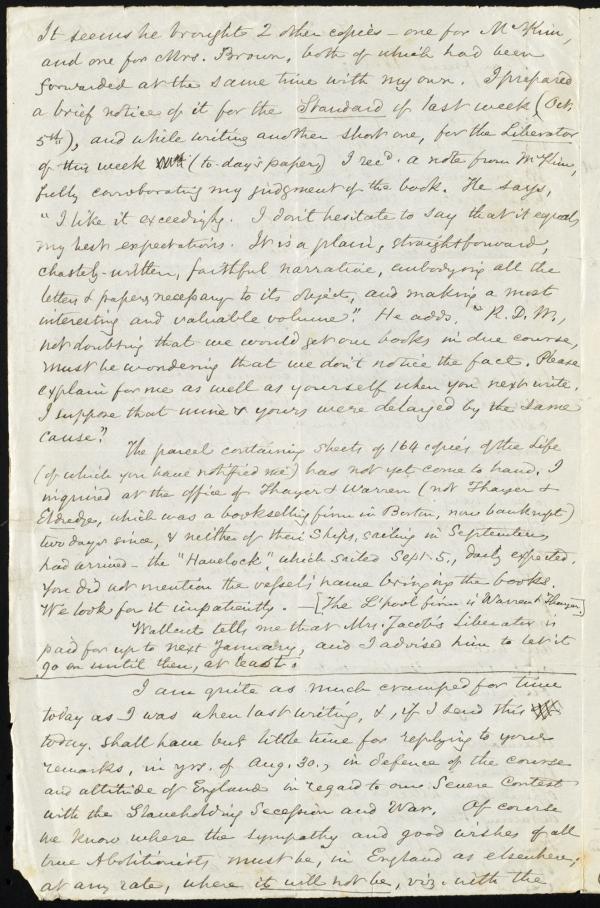 It seems he brought 2 other copies – one for McKim,
and one for Mrs. Brown, both of which had been
forwarded at the same time with my own. I prepared
a brief notice of it for the Standard of last week (Oct.
5th), and while writing another short one, for the Liberator
of this week (to-day's paper,) I recd. a note from McKim,
fully corroborating my judgment of the book. He says,
"I like it exceedingly. I don't hesitate to say that it equals
my best expectations. It is a plain, straightforward,
chastely-written, faithful narrative, embodying all the
letters & papers necessary to its object, and making a most
interesting and valuable volume." He adds, "R. D. W.,
not doubting that we would get our books in due course,
must be wondering that we don't notice the fact. Please
explain for me as well as yourself when you next write.
I suppose that mine & yours were delayed by the same
cause?"
The parcel containing sheets of 164 copies of the Life
(of which you have notified me) has not yet come to hand. I
inquired at the office of Thayer & Warren (not Thayer &
Eldredge, which was a bookselling firm in Boston, now bankrupt)
two days since, & neither of their Ships, sailing in September,
had arrived – the "Havelock", which sailed Sept. 5., daily expected.
You did not mention the vessel's name bringing the books.
We look for it impatiently. – [The L'pool firm is Warren & Thayer.]
Wallcut tells me that Mrs. Jacob's Liberator is
paid for up to next January, and I advised him to let it
go on until then, at least.
I am quite as much cramped for time
today as I was when last writing, &, if I send this
today, shall have but little time for replying to your
remarks, in yrs. of Aug. 30., in defence of the course
and attitude of England in regard to our Severe Contest
with the Slaveholding Secession and War. Of course
we know where the sympathy and good wishes of all
true Abolitionists must be, in England as elsewhere;
at any rate, where it will not be, viz. with the